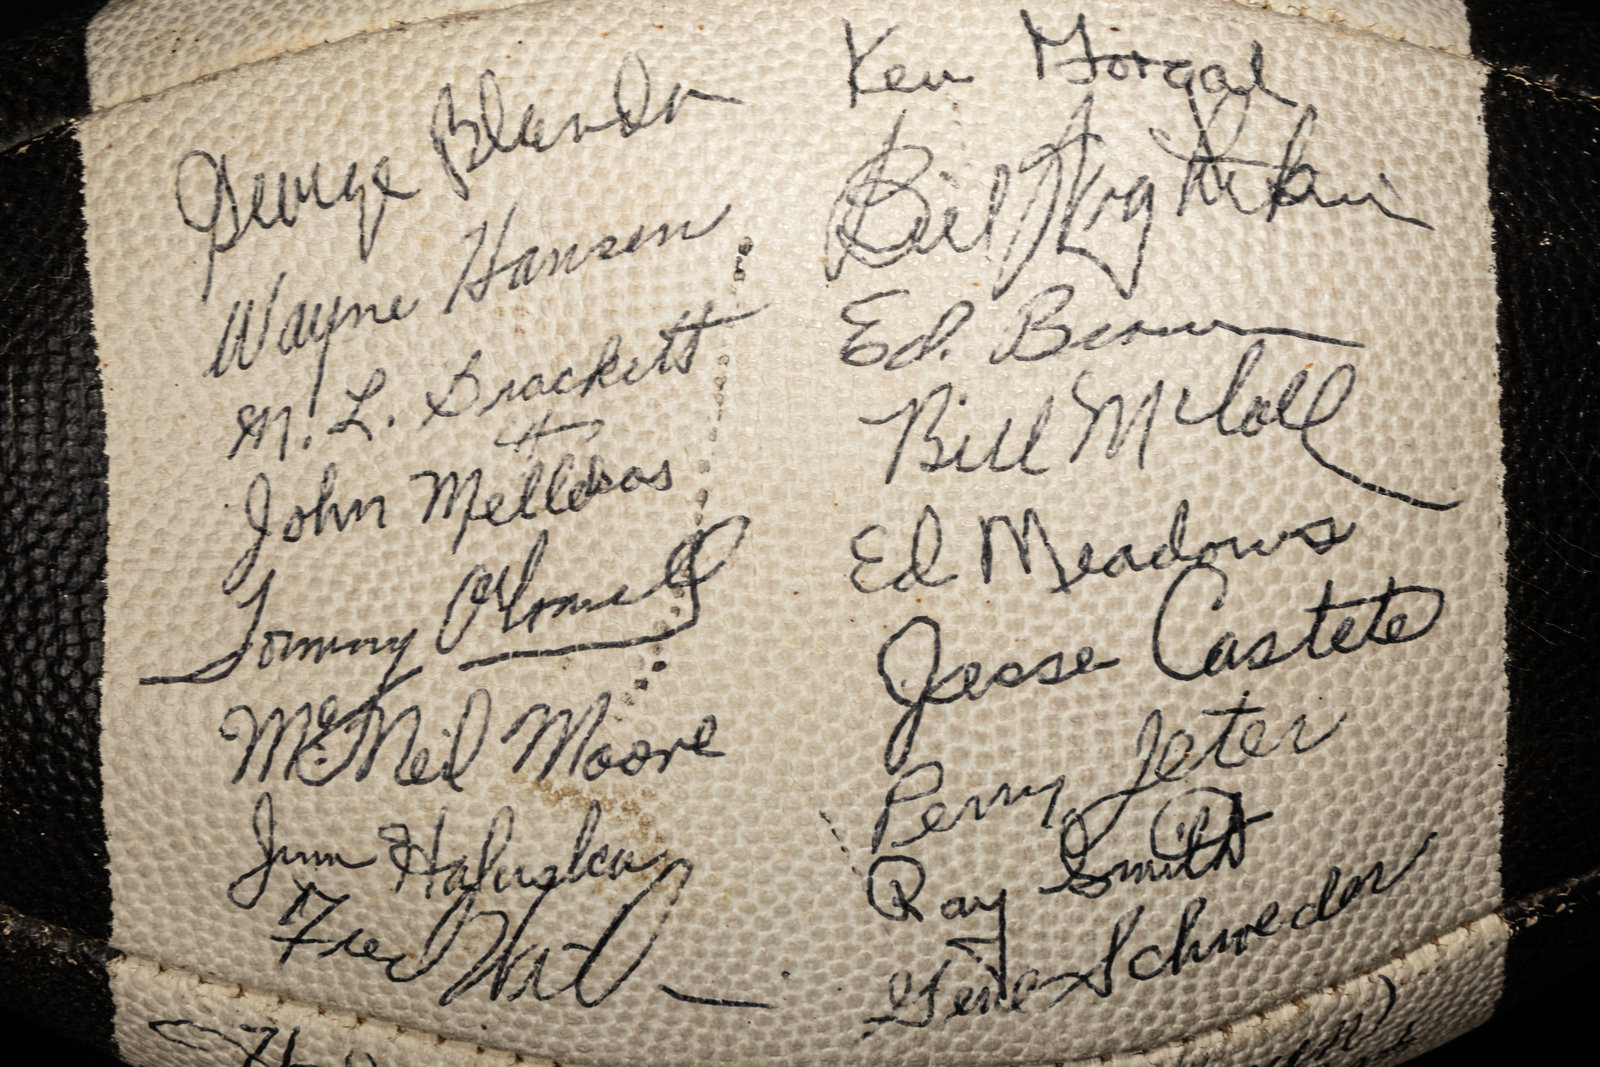 George Blanda
Wayne Hansen
M. L. Brackett
John Mellekas
Tommy O'Connell
McNeil Moore
Jim Haluska
Fred
Ken Gorgal
Bill George
Ed. Brown
Bill McColl
Ed Meadows
Jesse Castete
Perry Jeter
Ray Smith
Gene Schroeder